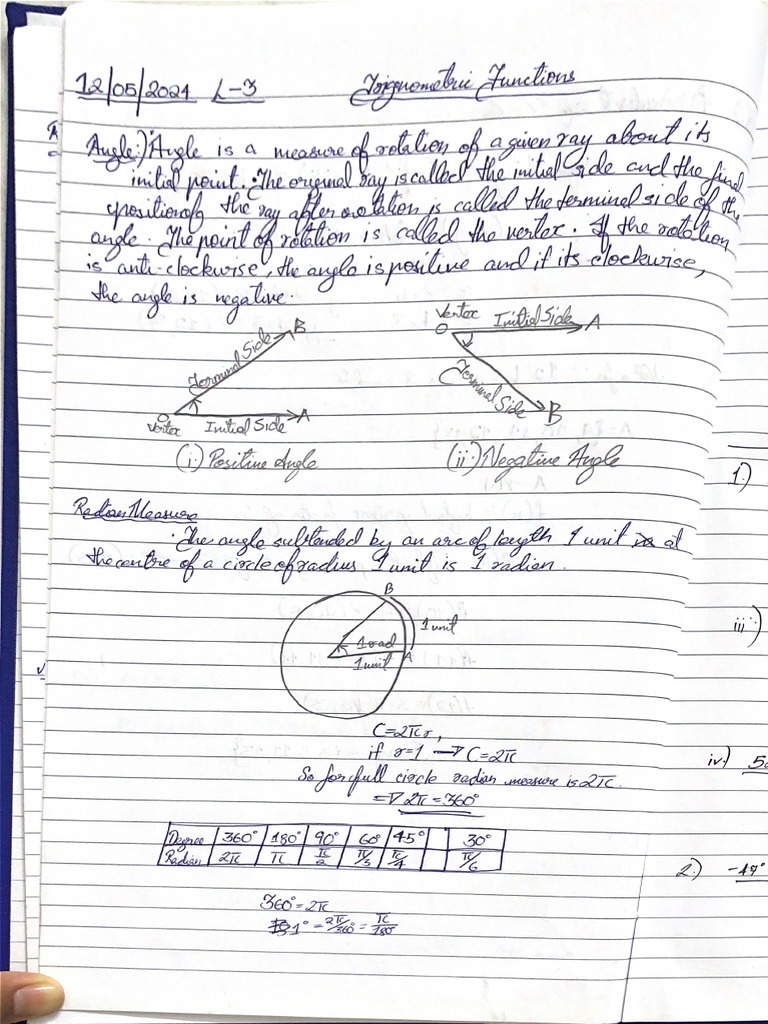 12/05/2024 L-3 Trigonometric Functions
Angle:) Angle is a measure of rotation of a given ray about its
initial point. The original ray is called the initial side and the final
position of the ray after rotation is called the terminal side of the
angle. The point of rotation is called the vertex. If the rotation
is anti-clockwise, the angle is positive and if its clockwise,
the angle is negative.
Terminal Side B
O Initial Side A
Vertex
(i) Positive Angle
Vertex
O Initial Side A
Terminal Side
B
(ii) Negative Angle
1.)
Radian Measure
The angle subtended by an arc of length 1 unit at
the centre of a circle of radius 1 unit is 1 radian.
B
1 unit
1 rad
1 unit A
iii)
C=2πr,
if r=1 → C=2π
iv.)
So for full circle radian measure is 2π.
⇒ 2π=360°
Degree 360° 180° 90° 60° 45° 30°
Radian 2π π π/2 π/3 π/4 π/6
2.) -47°
360°=2π
1°=2π/360°=π/180°